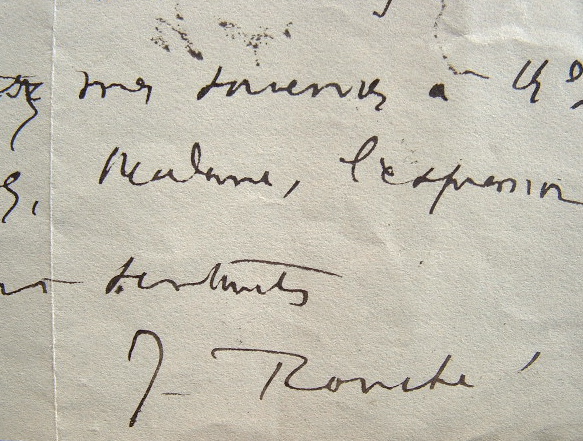 mes souvenirs à
Madame, l'expression
sentiments
J. Rouché